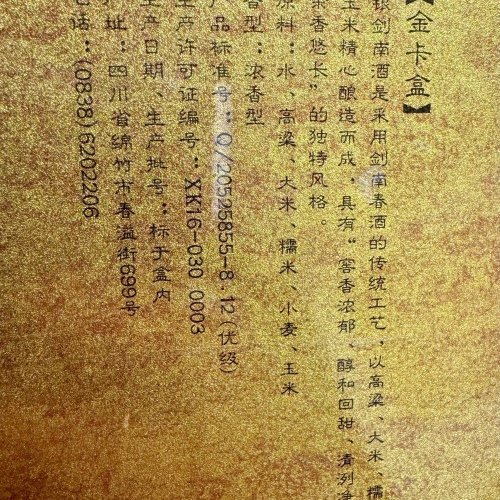 【金卡盒】
银剑南酒是采用剑南春酒的传统工艺，以高粱、大米、糯
玉米精心酿造而成，具有“窖香浓郁、醇和回甜、清冽净
余香悠长”的独特风格。
原料：水、高粱、大米、糯米、小麦、玉米
香型：浓香型
产品标准号：Q/20525855-8.12(优级)
生产许可证编号：XK16-030 0003
生产日期、生产批号：标于盒内
地址：四川省绵竹市春溢街699号
电话：(0838)6202206